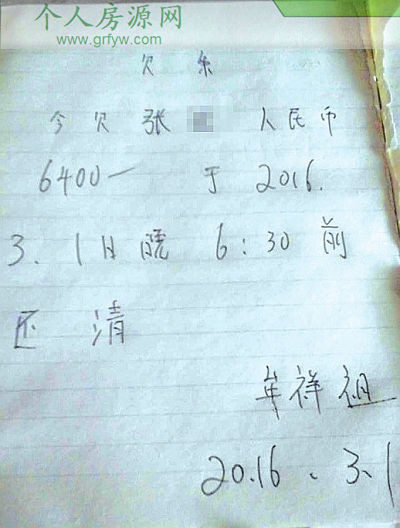 个人房源网
www.grfyw.com
欠条
今欠张 人民币
6400一 于 2016.
3. 1日晚 6:30前
还清
牟祥祖
2016、3、1